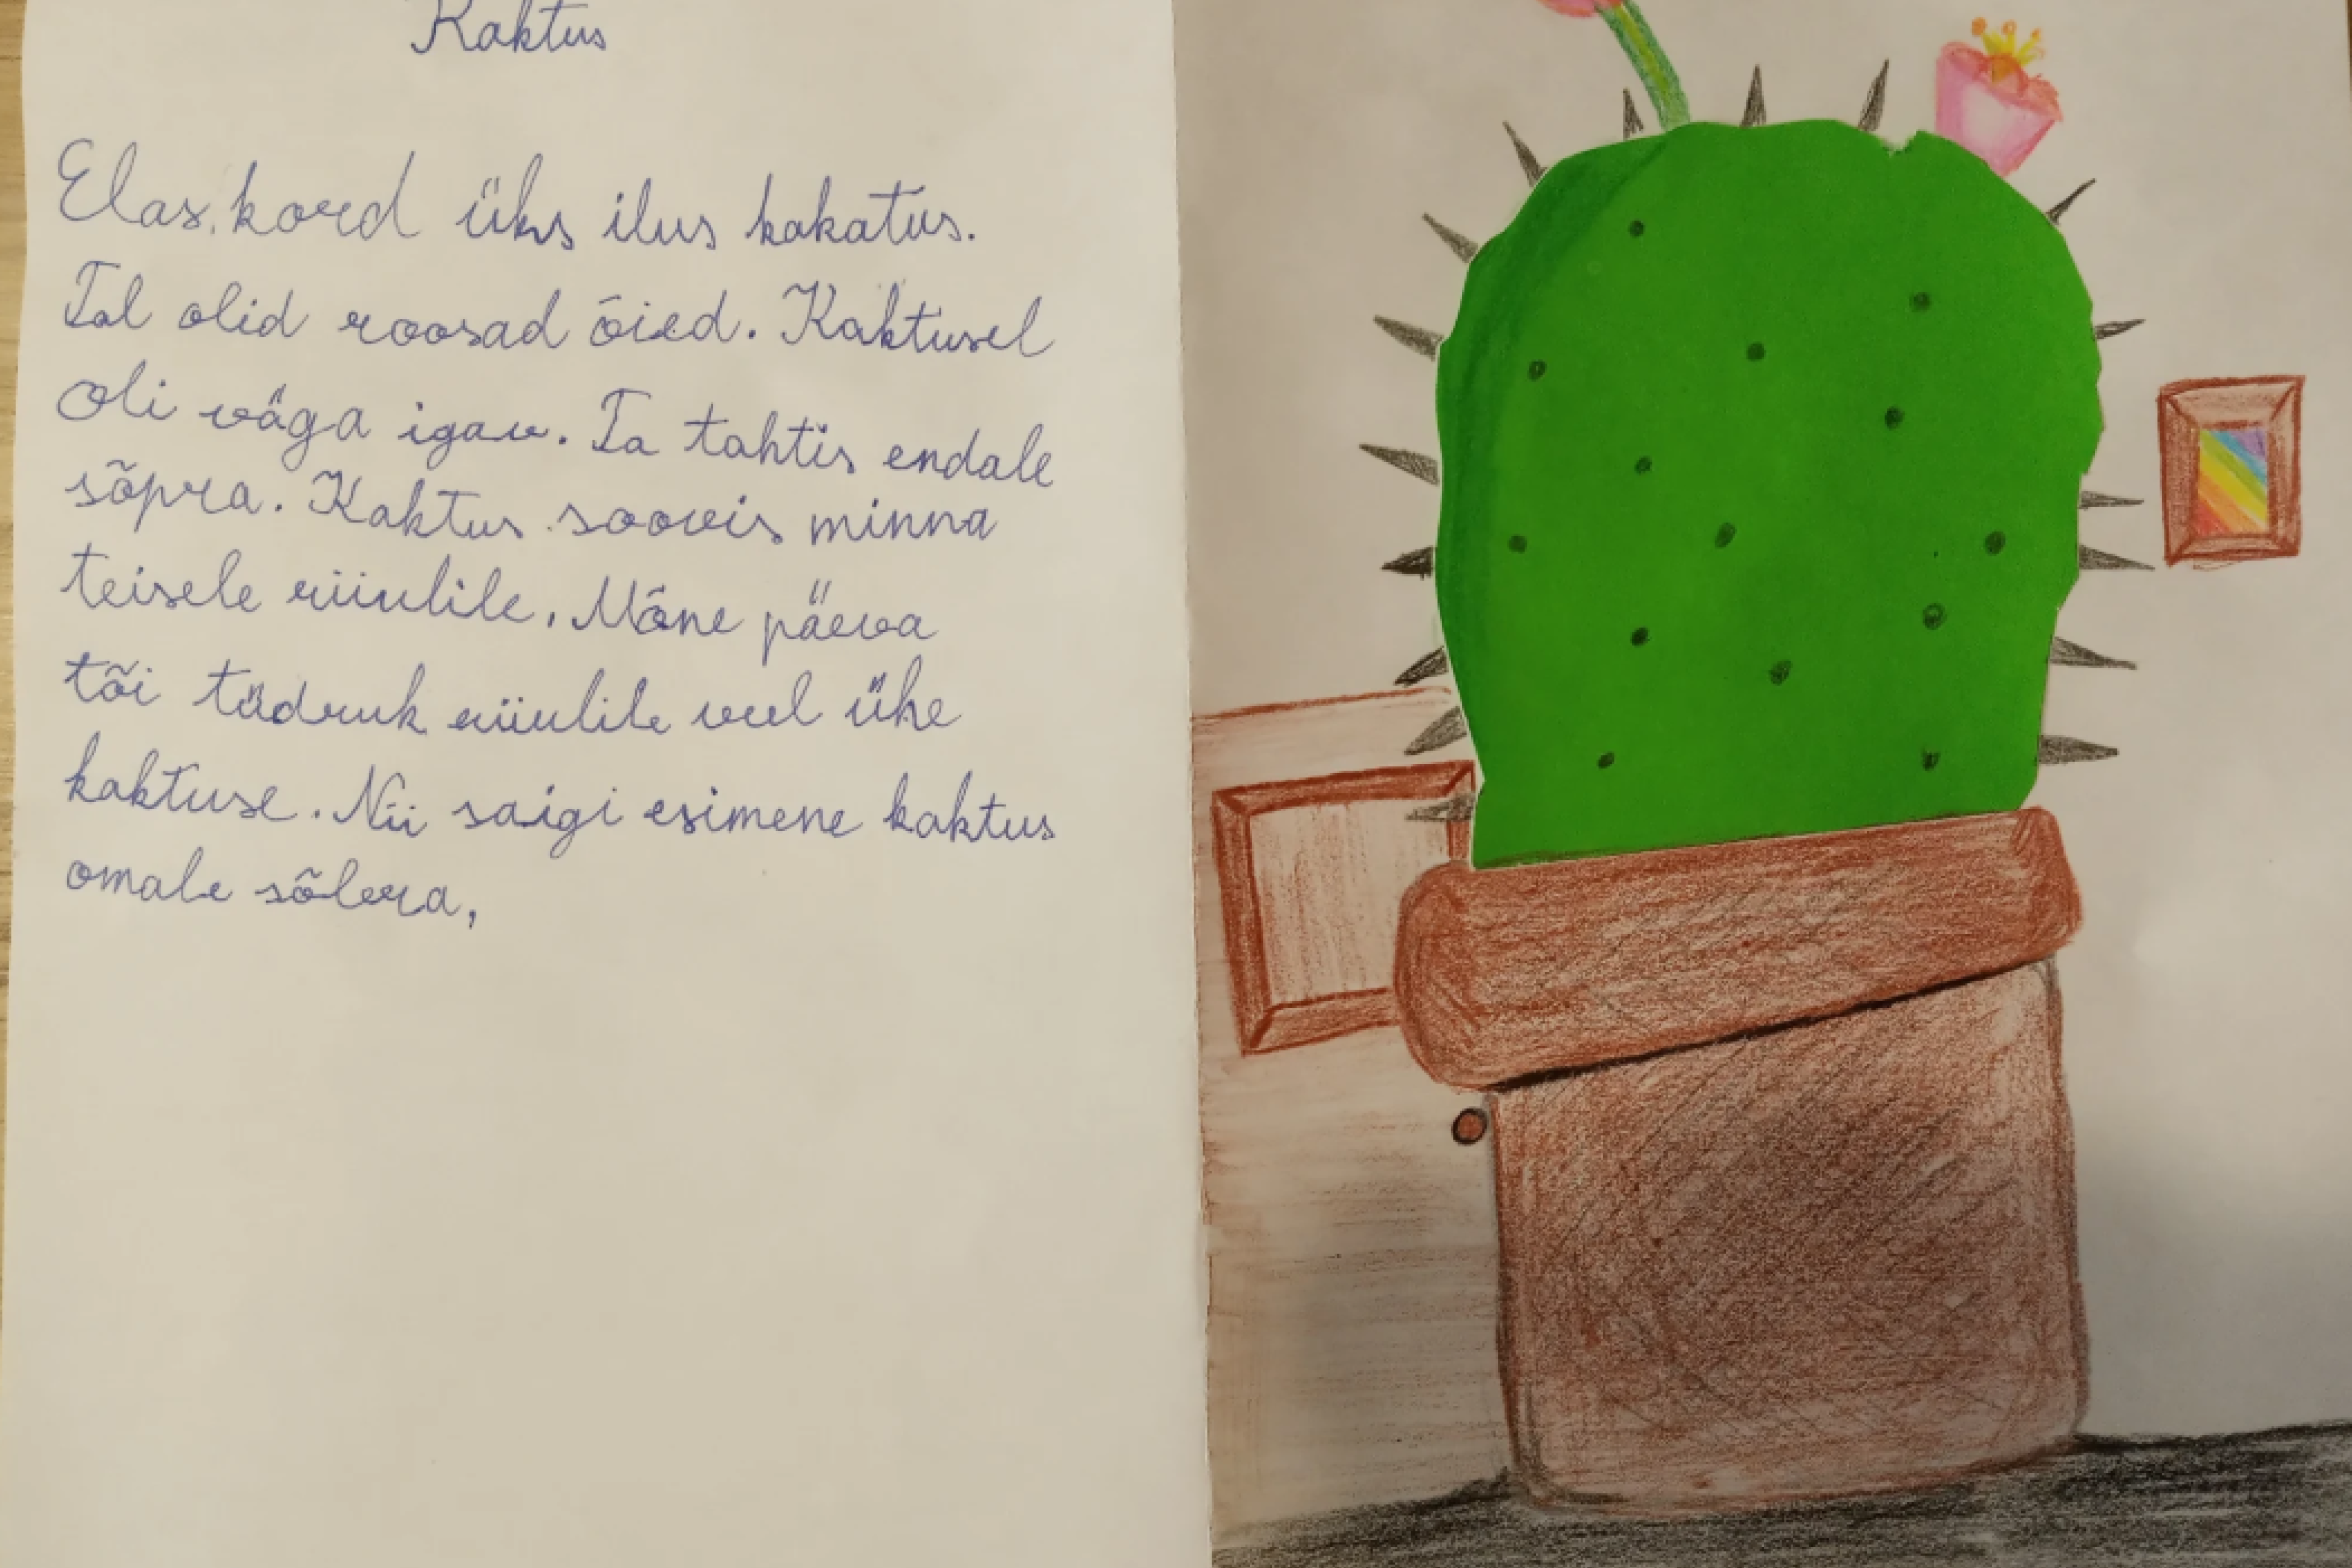 Kaktus
Elas kord üks ilus kakatus.
Tal olid roosad õied. Kaktusel
oli väga igav. Ta tahtis endale
sõpra. Kaktus soovis minna
teisele riiulile. Mõne päeva
tõi tüdruk riiulile veel ühe
kaktuse. Nii saigi esimene kaktus
omale sõbra,